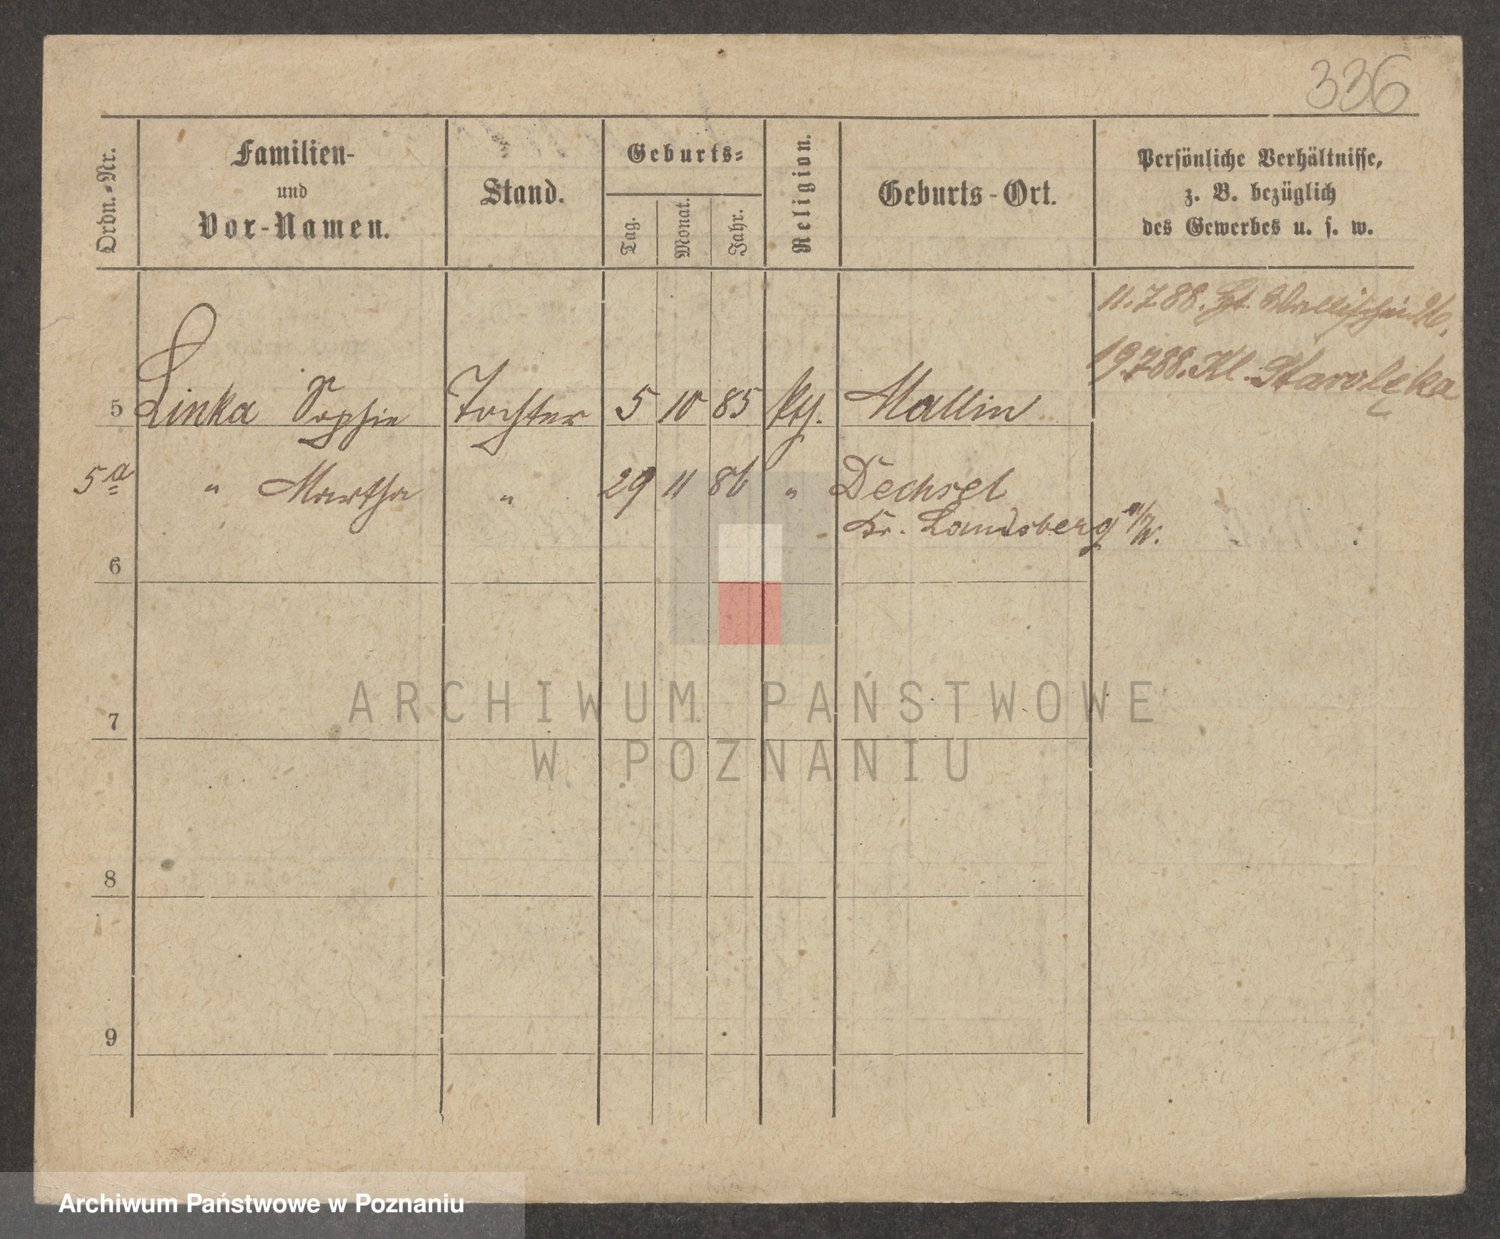 336
Ordn.-Nr.
Familien-
und
Vor-Namen.
Stand.
Geburts-
Tag.
Monat.
Jahr.
Religion.
Geburts-Ort.
Persönliche Verhältnisse,
z. B. bezüglich
des Gewerbes u. s. w.
11.7.88.
19.7.88. Kl. Starolęka
5 Linka Sophie Tochter 5 10 85 kth. Mallin
5a " Martha " 29 11 86 " Dechsel
Kr. Landsberg a/W.
6
7
8
9
ARCHIWUM PAŃSTWOWE
W POZNANIU
Archiwum Państwowe w Poznaniu